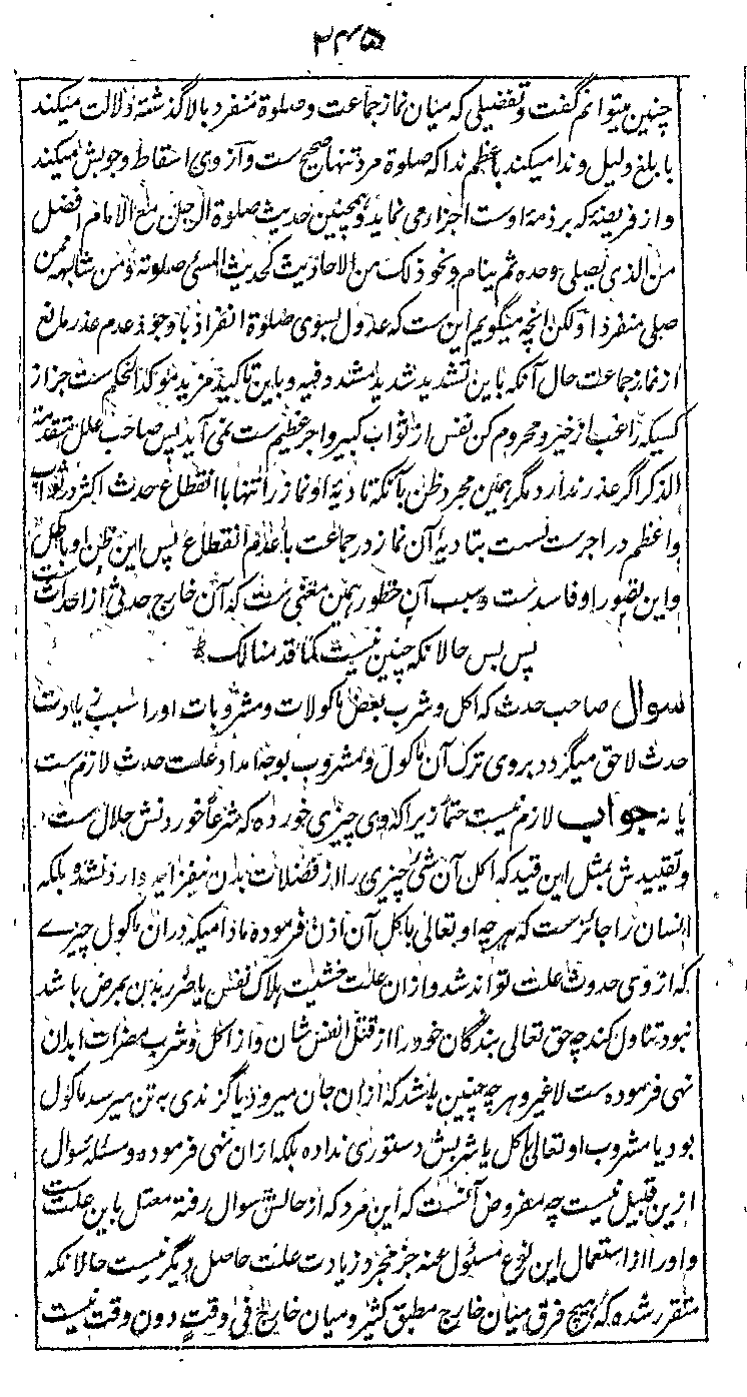 ۲۴۵
چنین میتوانم گفت و تفضیلی که میان نماز جماعت و صلوة منفرد بالا گذشته دلالت میکند
با بلغ دلیل و ندا میکند باعظم ندا که صلوة مرد تنها صحیح ست و از وی اسقاط وجوبش میکند
و از فریضهٔ که بر ذمهٔ اوست اجزا می نماید و همچنین حدیث صلوة الرجل مع الامام افضل
من الذی یصلی وحده ثم ینام و نحو ذلک من الاحادیث کحدیث المسئ صلوته و من شابهه ممن
صلی منفردا و لکن انچه میگویم این ست که عدول بسوی صلوة انفراد با وجود عدم عذر مانع
از نماز جماعت حال آنکه باین تشدید شدید مشدد فیه و باین تاکید مزید موکد الحکم ست جز از
کسیکه راغب از خیر و محروم کن نفس از ثواب کبیر و اجر عظیم ست نمی آید پس صاحب علل متقدمة
الذکر اگر عذر ندارد مگر همین مجرد ظن بآنکه تادیهٔ او نماز را تنها با انقطاع حدث اکثر در ثواب
و اعظم در اجرست نسبت بتادیهٔ آن نماز در جماعت با عدم انقطاع پس این ظن او باطل
و این تصور او فاسد ست و سبب آن خطور همین معنی ست که آن خارج حدثی از احداث ست
پس بس حالانکه چنین نیست کما قدمنا لک
سوال صاحب حدث که اکل و شرب بعض ماکولات و مشروبات او را سبب زیادت
حدث لاحق میگردد بروی ترک آن ماکول و مشروب بوجه امداد علت حدث لازم ست
یا نه جواب لازم نیست حتما زیرا که وی چیزی خورده که شرعا خوردنش حلال ست
و تقییدش بمثل این قید که اکل آن شئ چیزی را از فضلات بدن نیفزاید وارد نشده بلکه
انسان را جائز ست که هر چه او تعالی باکل آن اذن فرموده مادامیکه دران ماکول چیزے
که از وی حدوث علت تواند شد و ازان علت خشیت هلاک نفس یا ضرر بدن بمرض باشد
نبود تناول کند چه حق تعالی بندگان خود را از قتل انفس شان و از اکل و شرب مضرات ابدان
نهی فرموده ست لا غیر و هر چه چنین باشد که ازان جان میرود یا گزندی به تن میرسد ماکول
بود یا مشروب او تعالی باکل یا شربش دستوری نداده بلکه ازان نهی فرموده و مسئلهٔ سوال
ازین قبیل نیست چه مفروض آنست که این مرد که از حالش سوال رفته معتل باین علت ست
و او را از استعمال این نوع مسئول عنه جز مجرد زیادت علت حاصل دیگر نیست حالانکه
متقرر شده که هیچ فرق میان خارج مطبق کثیر و میان خارج فی وقت دون وقت نیست